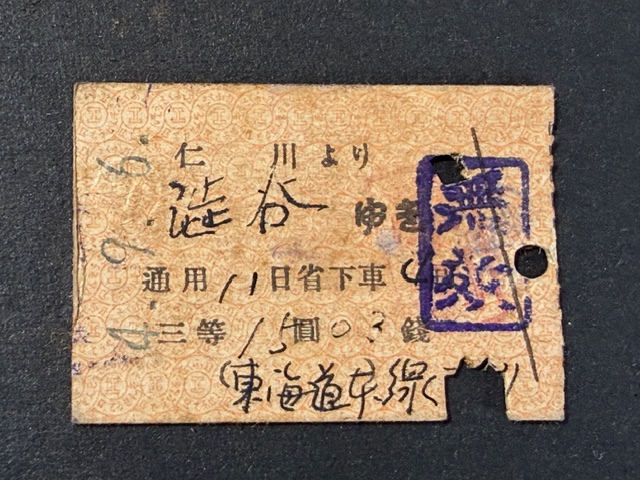 仁川より
澁谷ゆき
通用11日省下車4回
三等15圓03銭
(東海道本線
無効
4.9.6.